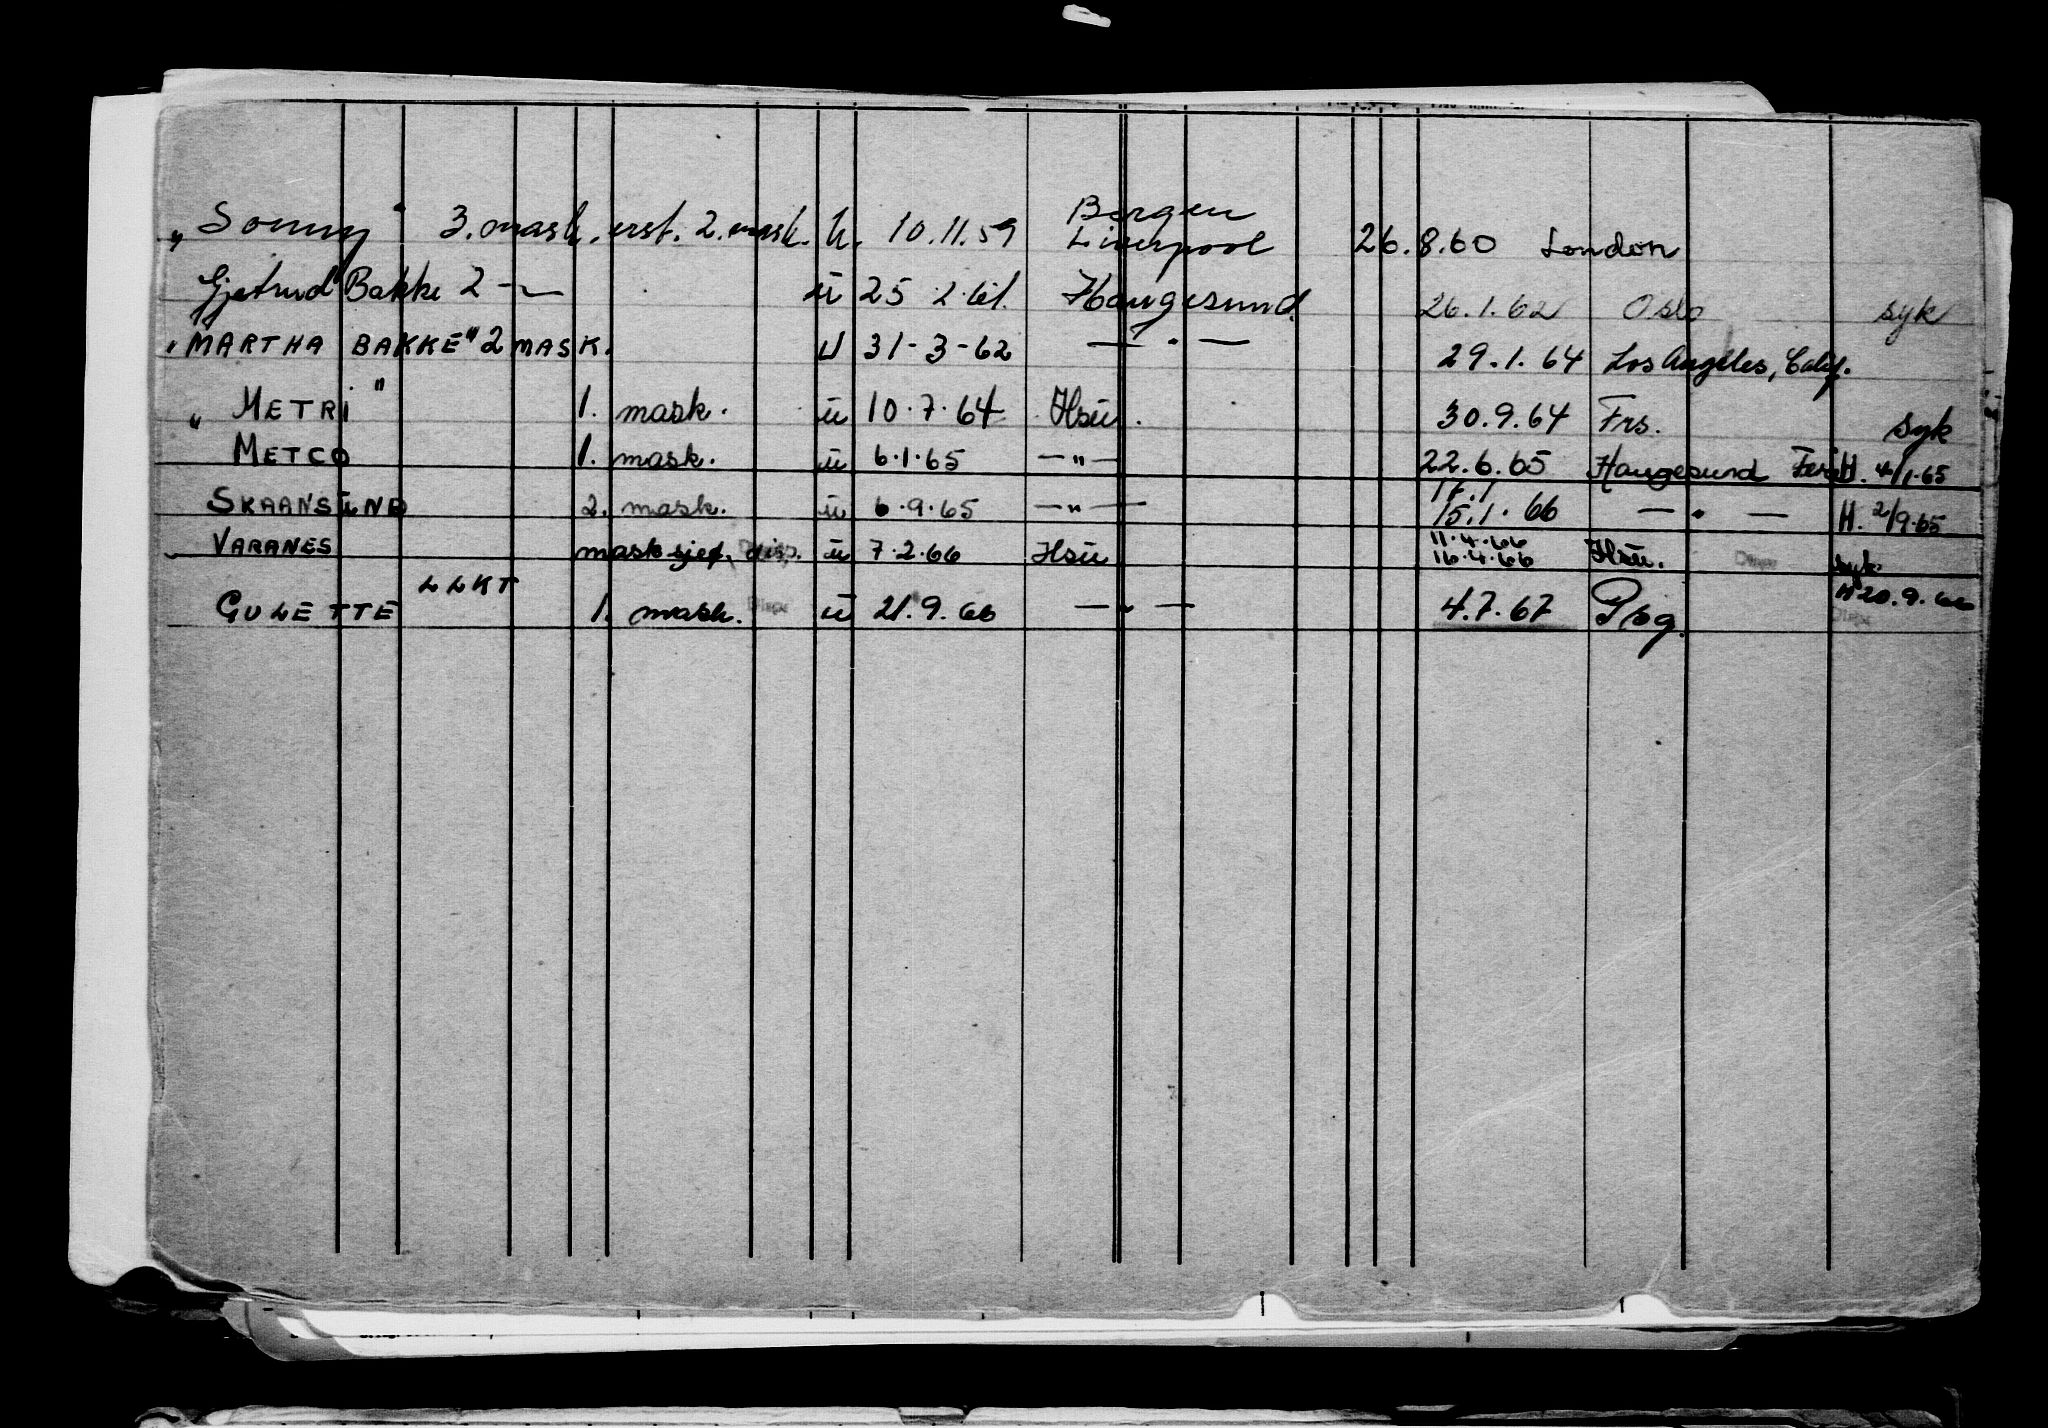 Bergen
„Sonny" 3. mask. erst. 2. mask. U. 10.11.59 Liverpool 26.8.60 London
Gjertrud Bakke 2 —〃— ü 25 2.61. Haugesund. 26.1.62 Oslo syk
"MARTHA BAKKE" 2 MASK. U 31-3-62 — " — 29.1.64 Los Angeles, Calif.
„METRI" 1. mask. ü 10.7.64 Hsü. 30.9.64 Frs. syk
METCO 1. mask. ü 6.1.65 — " — 22.6.65 Haugesund H. 4/1.65
SKAANSUND 2. mask. ü 6.9.65 — " — 15.1.66 — " — H. 2/9.65
11.4.66
VARANES mask sjef. dis. ü 7.2.66 Hsü 16.4.66 Hsü. syk
LLKT H 20.9.66
GULETTE 1. mask. ü 21.9.66 — " — 4.7.67 Pbg.